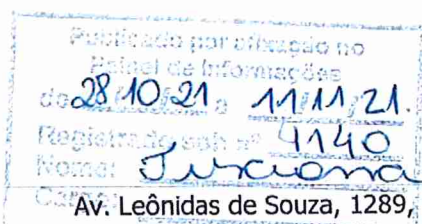 Publicado por afixação no
Painel de Informações
de 28/10/21 a 11/11/21.
Registrado sob nº 4140
Nome:
Av. Leônidas de Souza, 1289,